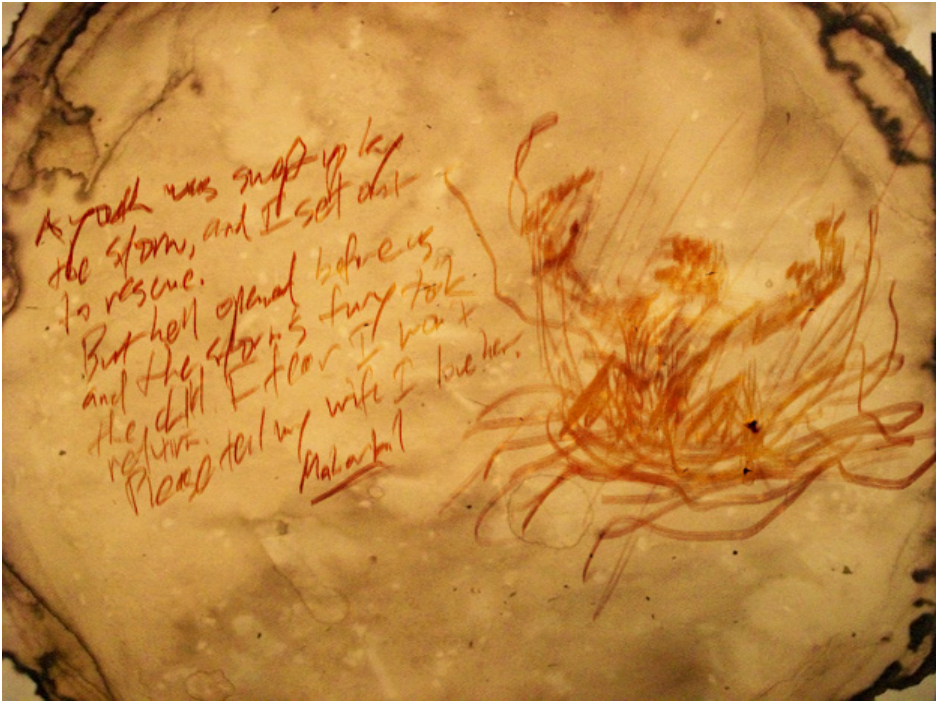 A youth was swept up by
the storm, and I set out
to rescue.
But hell opened before us
and the storm's fury took
the child. I fear I won't
return.
Please tell my wife I love her.